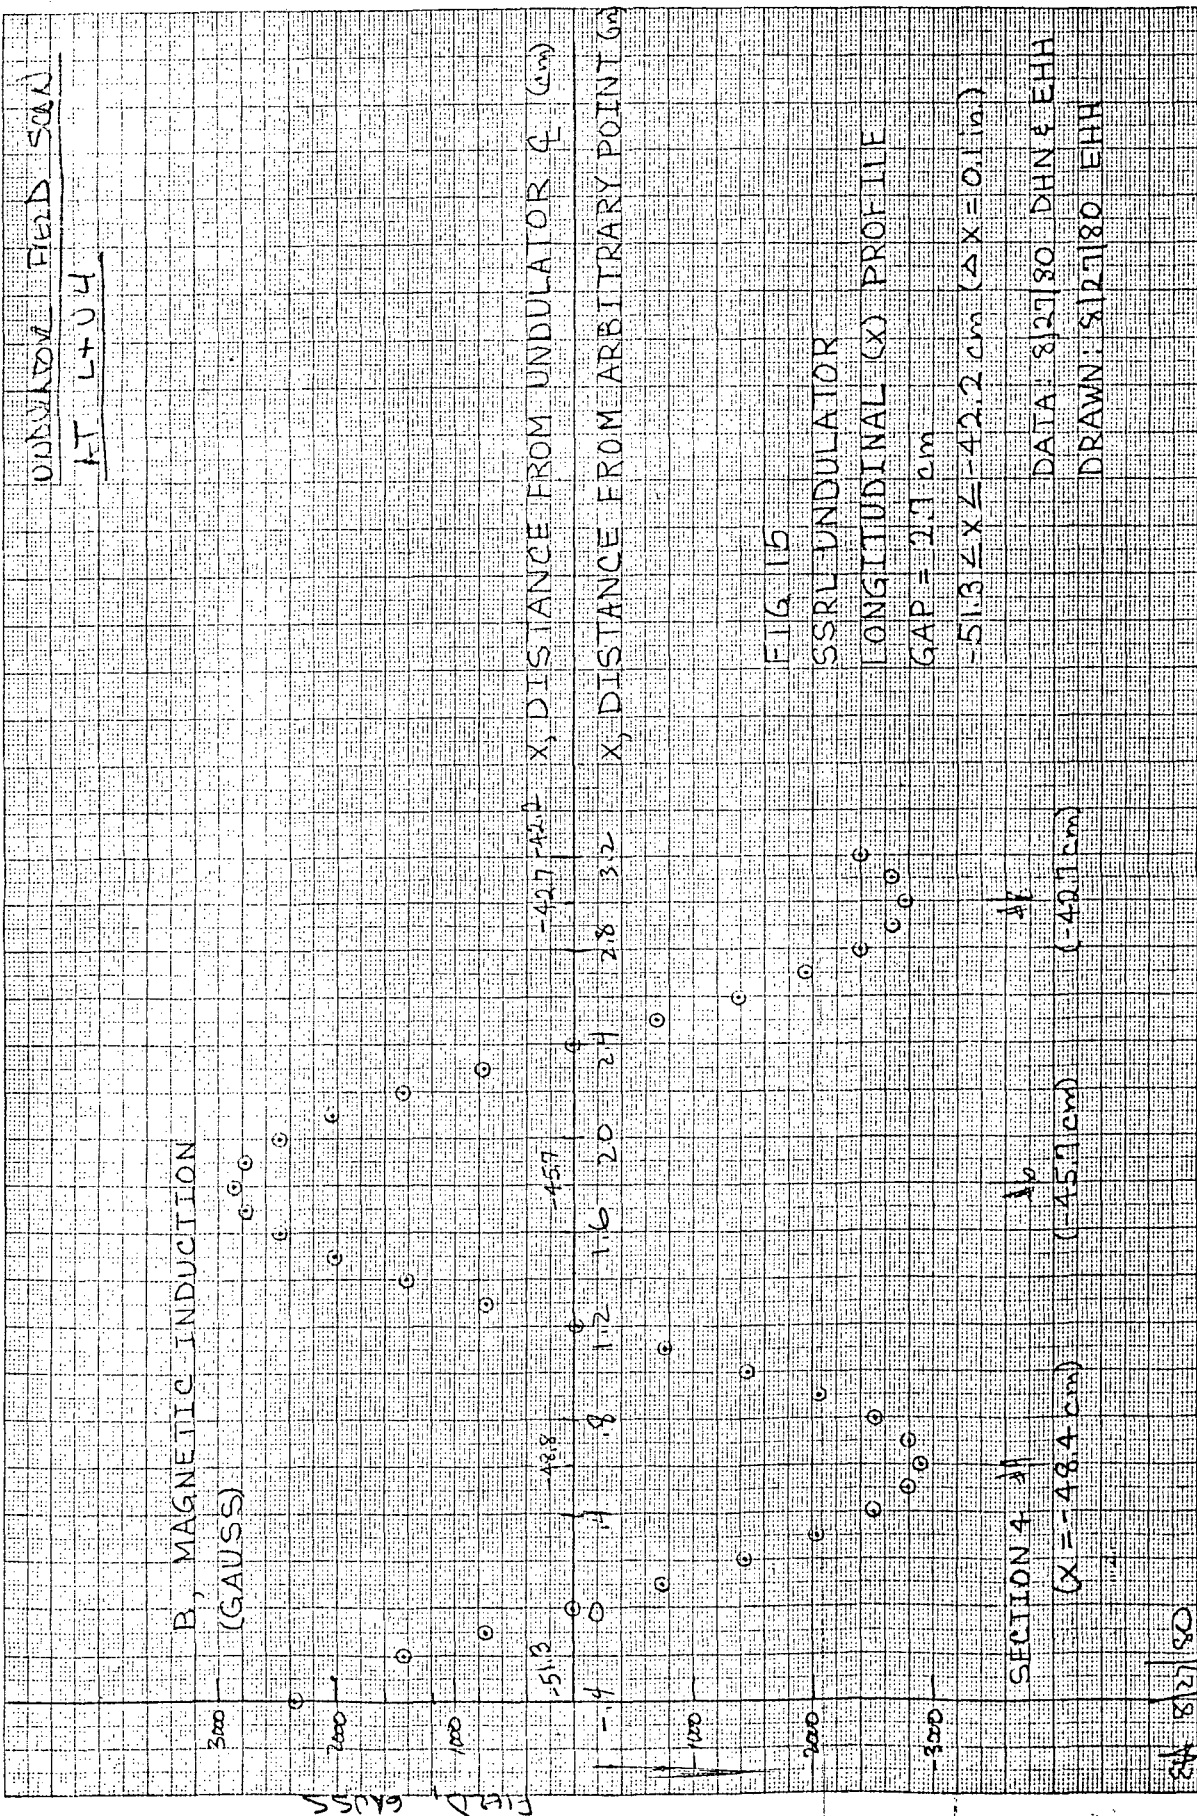 UNDULATOR FIELD SCAN
AT L+U4
B, MAGNETIC INDUCTION
(GAUSS)
FIELD, GAUSS
3000
2000
1000
-1000
2000
-3000
-51.3 -48.8 -45.7 -42.7 -42.2 X, DISTANCE FROM UNDULATOR ℄ (cm)
-.4 0 .4 .8 1.2 1.6 2.0 2.4 2.8 3.2 X, DISTANCE FROM ARBITRARY POINT (in)
FIG 15
SSRL UNDULATOR
LONGITUDINAL (X) PROFILE
GAP = 2.7 cm
-51.3 ≤ X ≤ -42.2 cm (ΔX = 0.1 in.)
DATA: 8/27/80 DHN & EHH
DRAWN: 8/27/80 EHH
SECTION 4 #9 #10
(X = -48.4 cm) (-45.7 cm) (-42.7 cm)
8/27/80